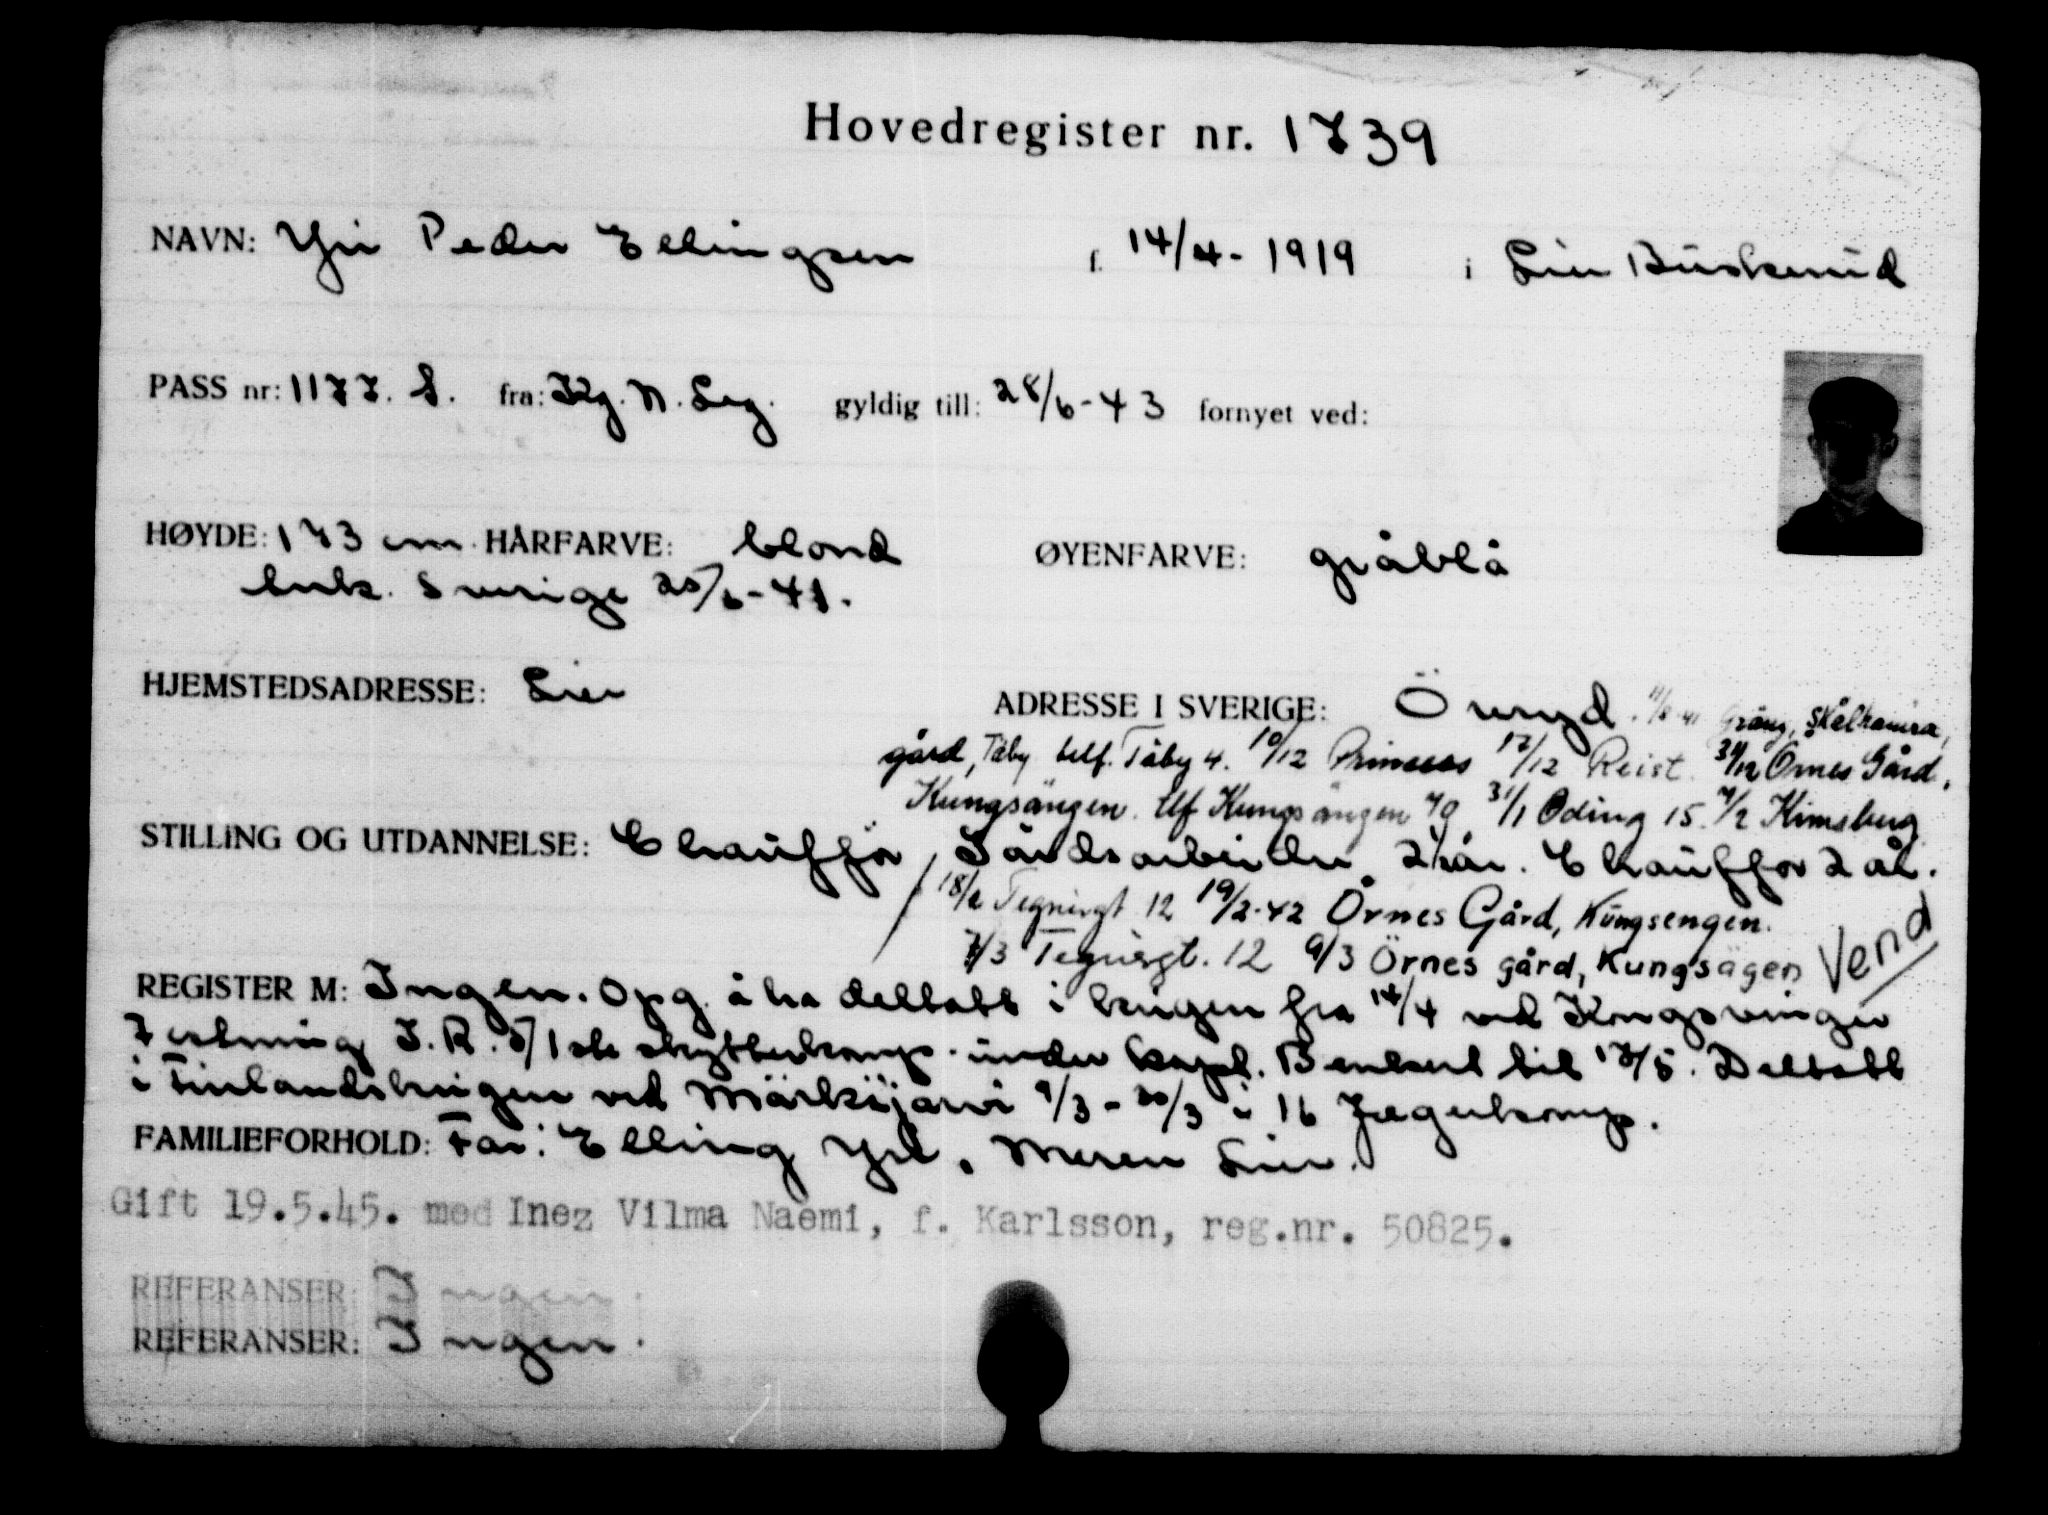 Hovedregister nr. 1739
NAVN: Yri Peder Ellingsen f. 14/4 - 1919 i Lier Buskerud
PASS nr: 1177. S. fra: Kg. N. Leg. gyldig till: 28/6 - 43 fornyet ved:
HØYDE: 173 cm. HÅRFARVE: blond ØYENFARVE: gråblå
Ank. Sverige 20/6 - 41.
HJEMSTEDSADRESSE: Lier ADRESSE I SVERIGE: Öreryd. 11/8-41 Gräng, Skålhamra,
gård, Täby telf. Täby 4. 10/12 Princess 17/12 Reist. 31/12 Örnes Gård,
Kungsängen. tlf Kungsängen 70 31/1 Oding 15. 7/2 Kimsberg
STILLING OG UTDANNELSE: Chauffør, Gårdsarbeider 2 år. Chauffør 2 år.
18/2 Tegnérgt 12 19/2-42 Örnes Gård, Kungsengen.
7/3 Tegnérgt. 12 9/3 Örnes gård, Kungsägen Vend
REGISTER M: Ingen. Opg. å ha deltatt i krigen fra 14/4 ved Kongsvinger
Festning I. R. 5/1ste skytterkomp. under kapt. Benkert til 17/5. Deltatt
i Finlandskrigen ved Märkäjärvi 9/3 - 20/3 i 16 Jegerkomp.
FAMILIEFORHOLD: Far: Elling Yri, Meren Lier.
Gift 19.5.45. med Inez Vilma Naemi, f. Karlsson, reg.nr. 50825.
REFERANSER: Ingen.
REFERANSER: Ingen.